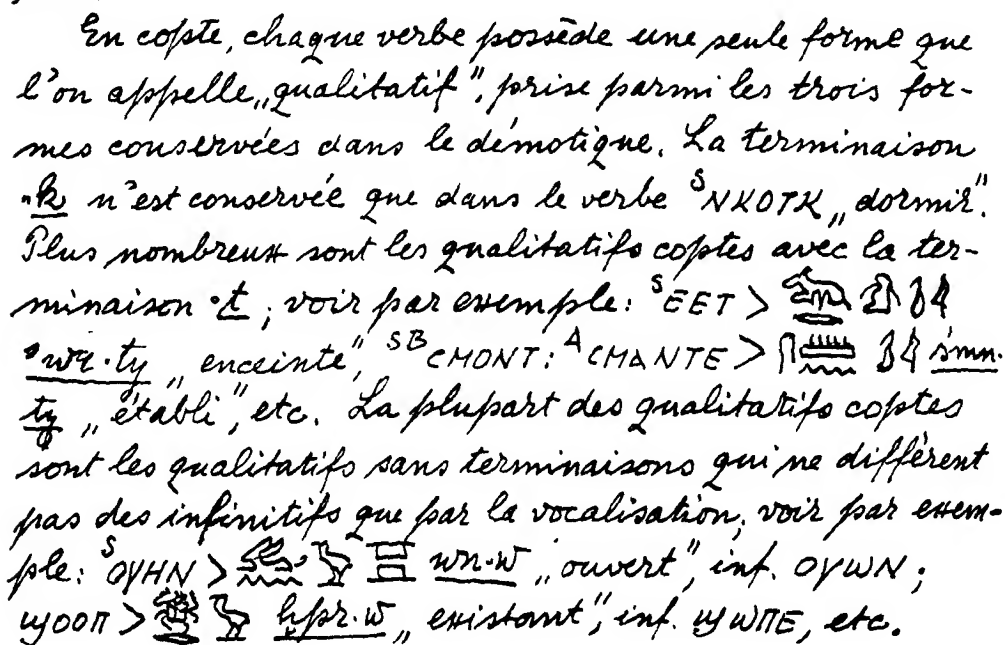 En copte, chaque verbe possède une seule forme que
l'on appelle „qualitatif", prise parmi les trois for-
mes conservées dans le démotique. La terminaison
·k n'est conservée que dans le verbe ˢⲚⲔⲞⲦⲔ „dormir".
Plus nombreux sont les qualitatifs coptes avec la ter-
minaison ·t; voir par exemple: ˢⲈⲈⲦ >
„enceinte", ˢᴮⲤⲘⲞⲚⲦ: ᴬⲤⲘⲀⲚⲦⲈ > śmn·
ty „établi", etc. La plupart des qualitatifs coptes
sont les qualitatifs sans terminaisons qui ne diffèrent
pas des infinitifs que par la vocalisation; voir par exem-
ple: ˢⲞⲨⲎⲚ > wn·w „ouvert", inf. ⲞⲨⲰⲚ;
ϢⲞⲞⲠ > ḫpr·w „existant", inf. ϢⲰⲠⲈ, etc.